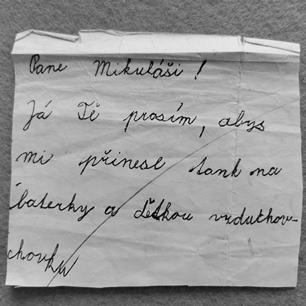 Pane Mikuláši!
Já Tě prosím, abys
mi přinesl tank na
baterky a dětskou vzduchov-
chovku